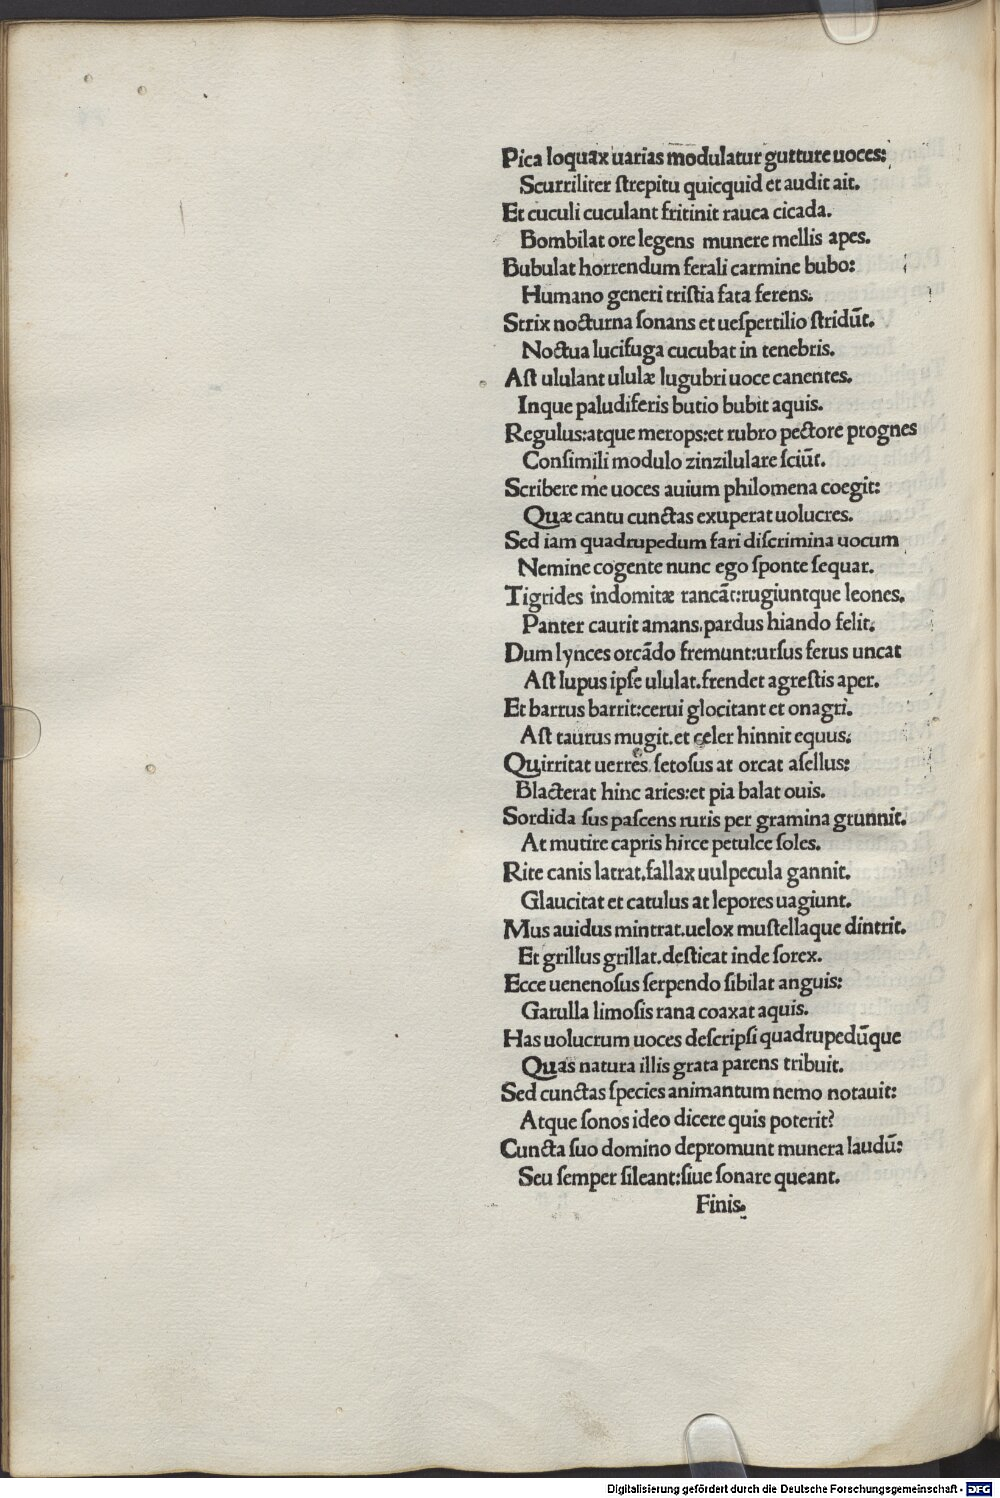 Pica loquax uarias modulatur gutture uoces:
Scurriliter ſtrepitu quicquid et audit ait.
Et cuculi cuculant fritinit rauca cicada.
Bombilat ore legens munere mellis apes.
Bubulat horrendum ferali carmine bubo:
Humano generi triſtia fata ferens.
Strix nocturna ſonans et ueſpertilio ſtridūt.
Noctua lucifuga cucubat in tenebris.
Aſt ululant ululæ lugubri uoce canentes.
Inque paludiferis butio bubit aquis.
Regulus:atque merops:et rubro pectore prognes
Conſimili modulo zinzilulare ſciūt.
Scribere me uoces auium philomena coegit:
Quæ cantu cunctas exuperat uolucres.
Sed iam quadrupedum fari diſcrimina uocum
Nemine cogente nunc ego ſponte ſequar.
Tigrides indomitæ rancāt:rugiuntque leones.
Panter caurit amans.pardus hiando felit.
Dum lynces orcādo fremunt:urſus ferus uncat
Aſt lupus ipſe ululat.frendet agreſtis aper.
Et barrus barrit:cerui glocitant et onagri.
Aſt taurus mugit.et celer hinnit equus:
Quirritat uerres ſetoſus at orcat aſellus:
Blacterat hinc aries:et pia balat ouis.
Sordida ſus paſcens ruris per gramina grunnit.
At mutire capris hirce petulce ſoles.
Rite canis latrat.fallax uulpecula gannit.
Glaucitat et catulus at lepores uagiunt.
Mus auidus mintrat.uelox muſtellaque dintrit.
Et grillus grillat.deſticat inde ſorex.
Ecce uenenoſus ſerpendo ſibilat anguis:
Garulla limoſis rana coaxat aquis.
Has uolucrum uoces deſcripſi quadrupedūque
Quas natura illis grata parens tribuit.
Sed cunctas ſpecies animantum nemo notauit:
Atque ſonos ideo dicere quis poterit?
Cuncta ſuo domino depromunt munera laudū:
Seu ſemper ſileant:ſiue ſonare queant.
Finis.
Digitalisierung gefördert durch die Deutsche Forschungsgemeinschaft - DFG